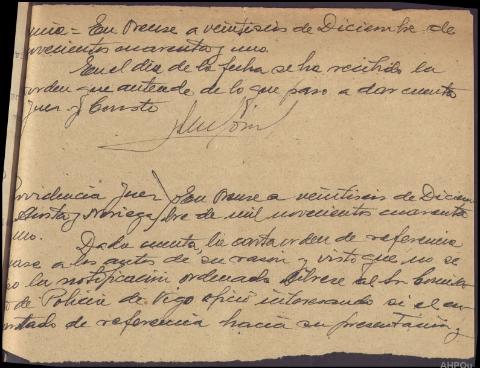 = En Orense a veintiseis de Diciembre de
novecientos cuarenta y uno.
En el dia de la fecha se ha recibido la
orden que antecede de lo que paso a dar cuenta
Juez y Consto
Providencia Juez / En Orense a veintiseis de Diciem
Acosta y Noriega / bre de mil novecientos cuarenta
uno.
Dada cuenta la carta orden de referencia
a los autos de su razon y visto que no se
la notificacion ordenada librese al Sr Comisa
de Policia de Vigo oficio interesando si el
de referencia hacia su presentación y
AHPOu